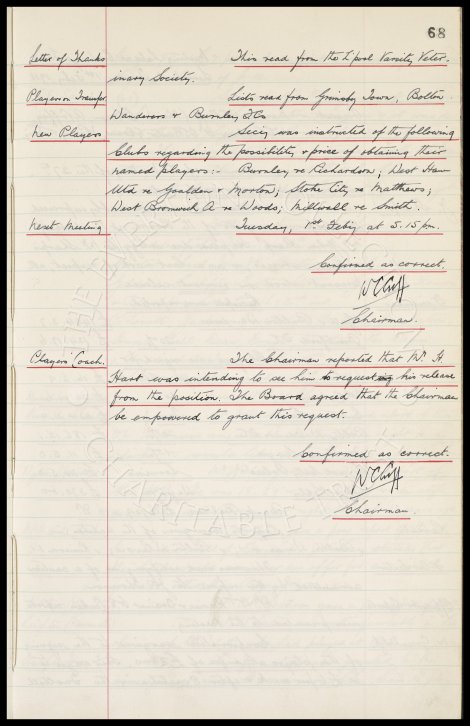 68
Letter of Thanks This read from the L'pool Varsity Veter-
inary Society.
Players on Transfer Lists read from Grimsby Town, Bolton
Wanderers & Burnley F.Cs
New Players Secy was instructed of the following
Clubs regarding the possibility & price of obtaining their
named players:- Burnley, re Richardson; West Ham
Utd re Goulden & Morton; Stoke City, re Matthews;
West Bromwich A re Woods; Millwall re Smith.
Next Meeting Tuesday, 1st Feby at 5.15 pm.
Confirmed as correct.
W.C. Cuff
Chairman.
Players' Coach. The Chairman reported that Mr H
Hart was intending to see him to request his release
from the position. The Board agreed that the Chairman
be empowered to grant this request.
Confirmed as correct.
W.C. Cuff
Chairman.
CHARITABLE